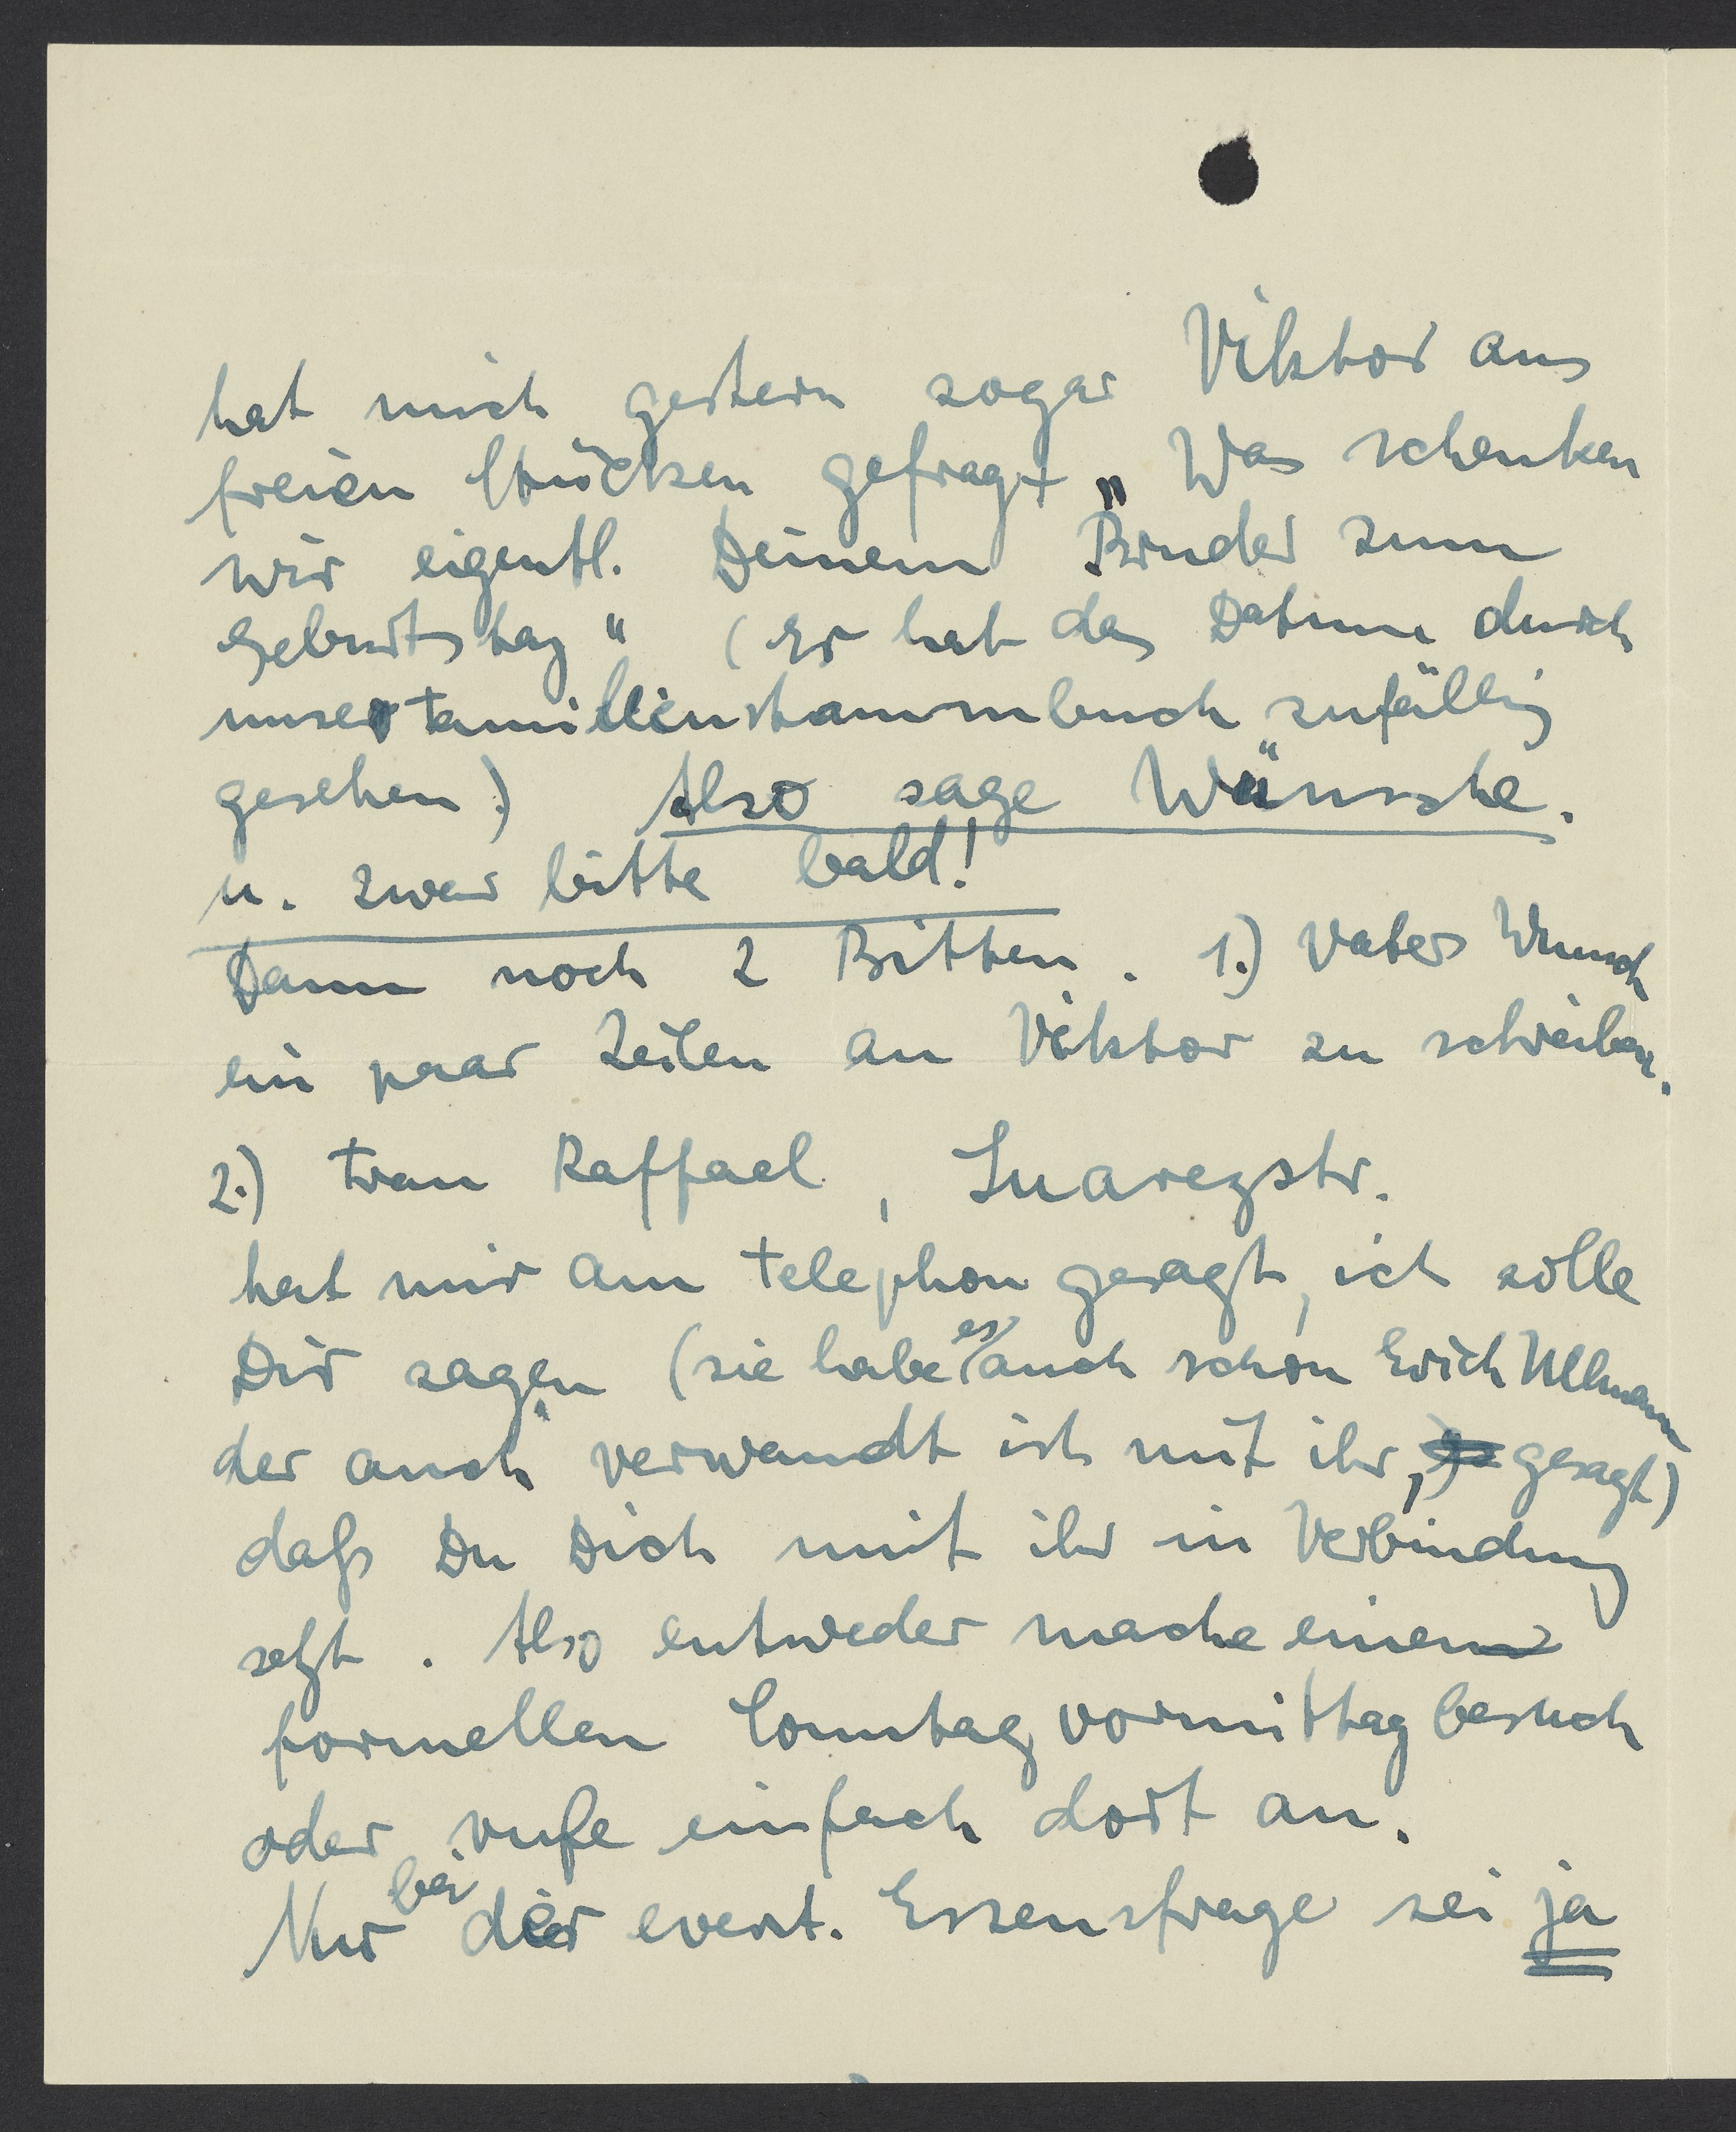 hat mich gestern sogar Viktor aus
freien Stücken gefragt „Was schenken
wir eigentl. Deinem Bruder zum
Geburtstag" (Er hat das Datum durch
unser Familienstammbuch zufällig
gesehen.) Also sage Wünsche.
u. zwar bitte bald!
Dann noch 2 Bitten. 1.) Vaters Wunsch
ein paar Zeilen an Viktor zu schreiben.
2.) Frau Raffael, Suarezstr.
hat mir am Telephon gesagt, ich solle
Dir sagen (sie habe es auch schon Erich Ullmann
der auch verwandt ist mit ihr, gesagt)
daß Du Dich mit ihr in Verbindung
setzt. Also entweder mache einen
formellen Sonntagvormittagbesuch
oder rufe einfach dort an.
Nur bei der event. Essensfrage sei ja